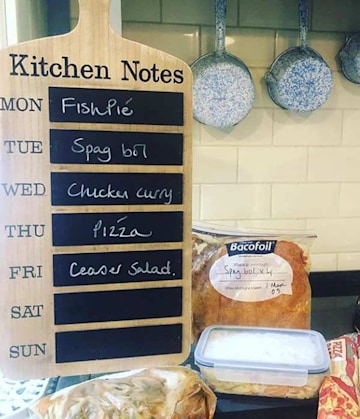 Kitchen Notes
MON Fish Pié
TUE Spag bol
WED Chicken curry
THU Pizza
FRI Ceaser Salad.
SAT
SUN
Bacofoil
Spag bol x 4
1 Mar